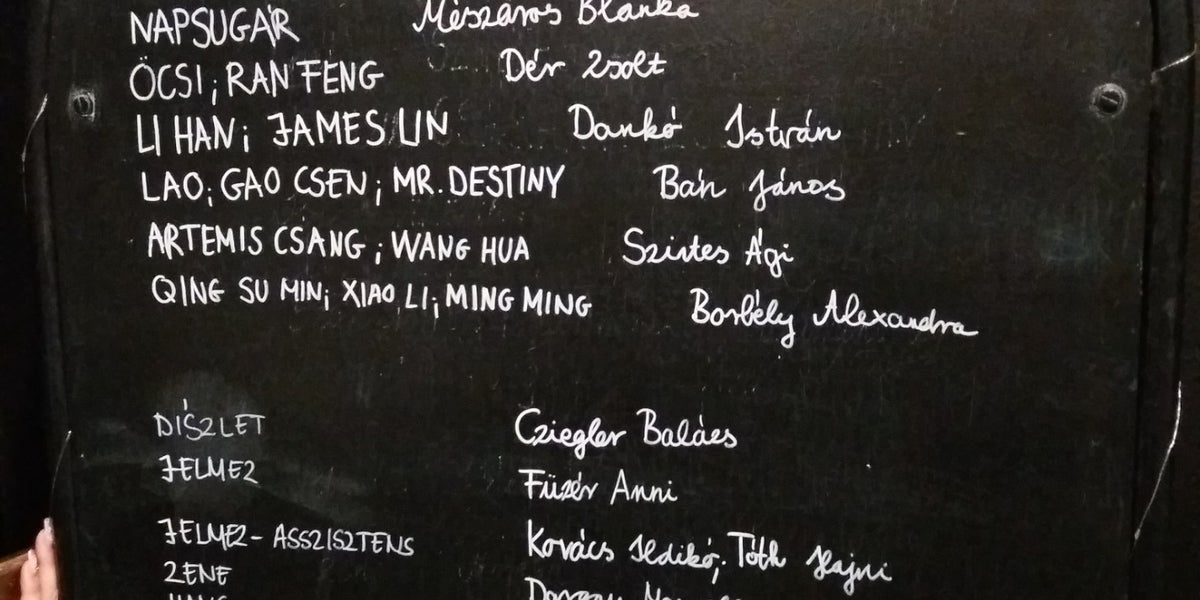 NAPSUGÁR Mészáros Blanka
ÖCSI; RAN FENG Dér Zsolt
LI HAN; JAMES LIN Dankó István
LAO; GAO CSEN; MR. DESTINY Bán János
ARTEMIS CSANG; WANG HUA Szirtes Ági
QING SU MIN; XIAO LI; MING MING Borbély Alexandra
DÍSZLET Cziegler Balázs
JELMEZ Füzér Anni
JELMEZ-ASSZISZTENS Kovács Ildikó; Tóth Hajni
ZENE